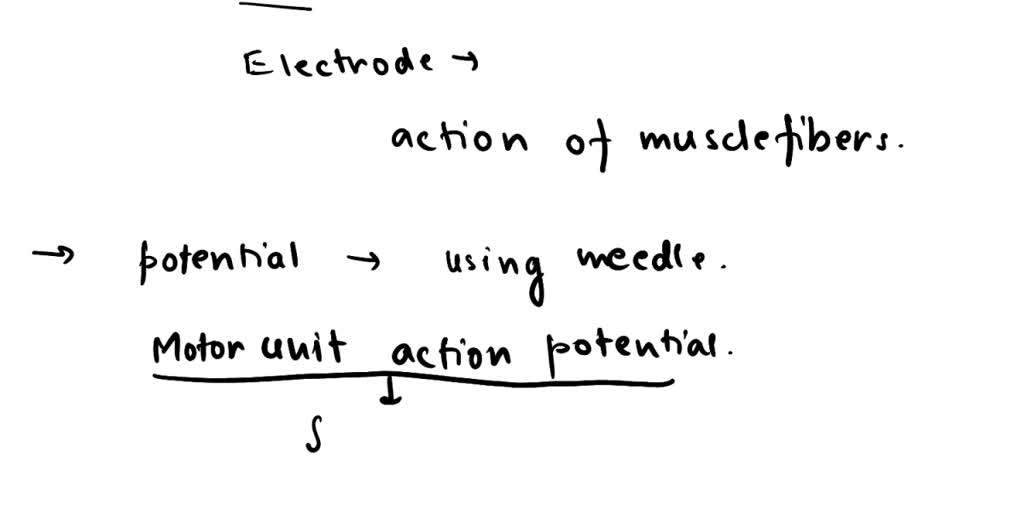 Electrode →
action of musclefibers.
→ potential → using meedle.
Motor unit action potential.
↓
S